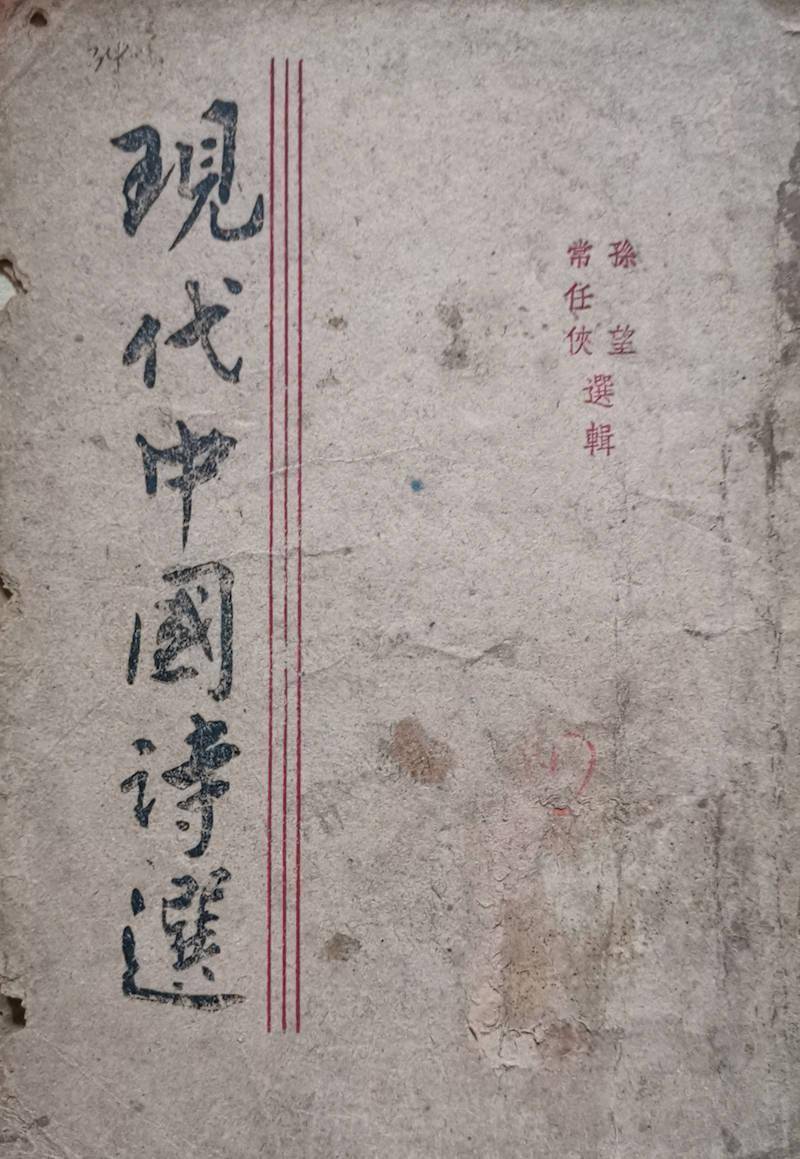 孫望
常任俠
選輯
現代中國詩選